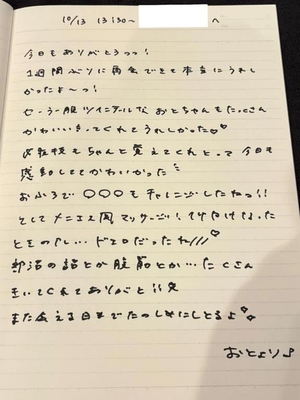 10/13 13:30〜 へ
今日もありがとうっっ!
1週間ぶりに再会できて本当にうれし
かったよ〜っ!
セーラー服ツインテールな おとちゃんもたっくさん
かわいいきってくれてうれしかった♡♡
もちゃんと覚えてくれとって今日も
感動しててかわいかった
おふろで○○○もチャレンジしたねっ!!
そしてメニエス風マッサージ!
とものたし… ドエロだったね///♡
部活の話とか腹筋とか…たくさん
きいてくれてありがと!!
また会える日までたのしみにしとるよ♡
おとより♪